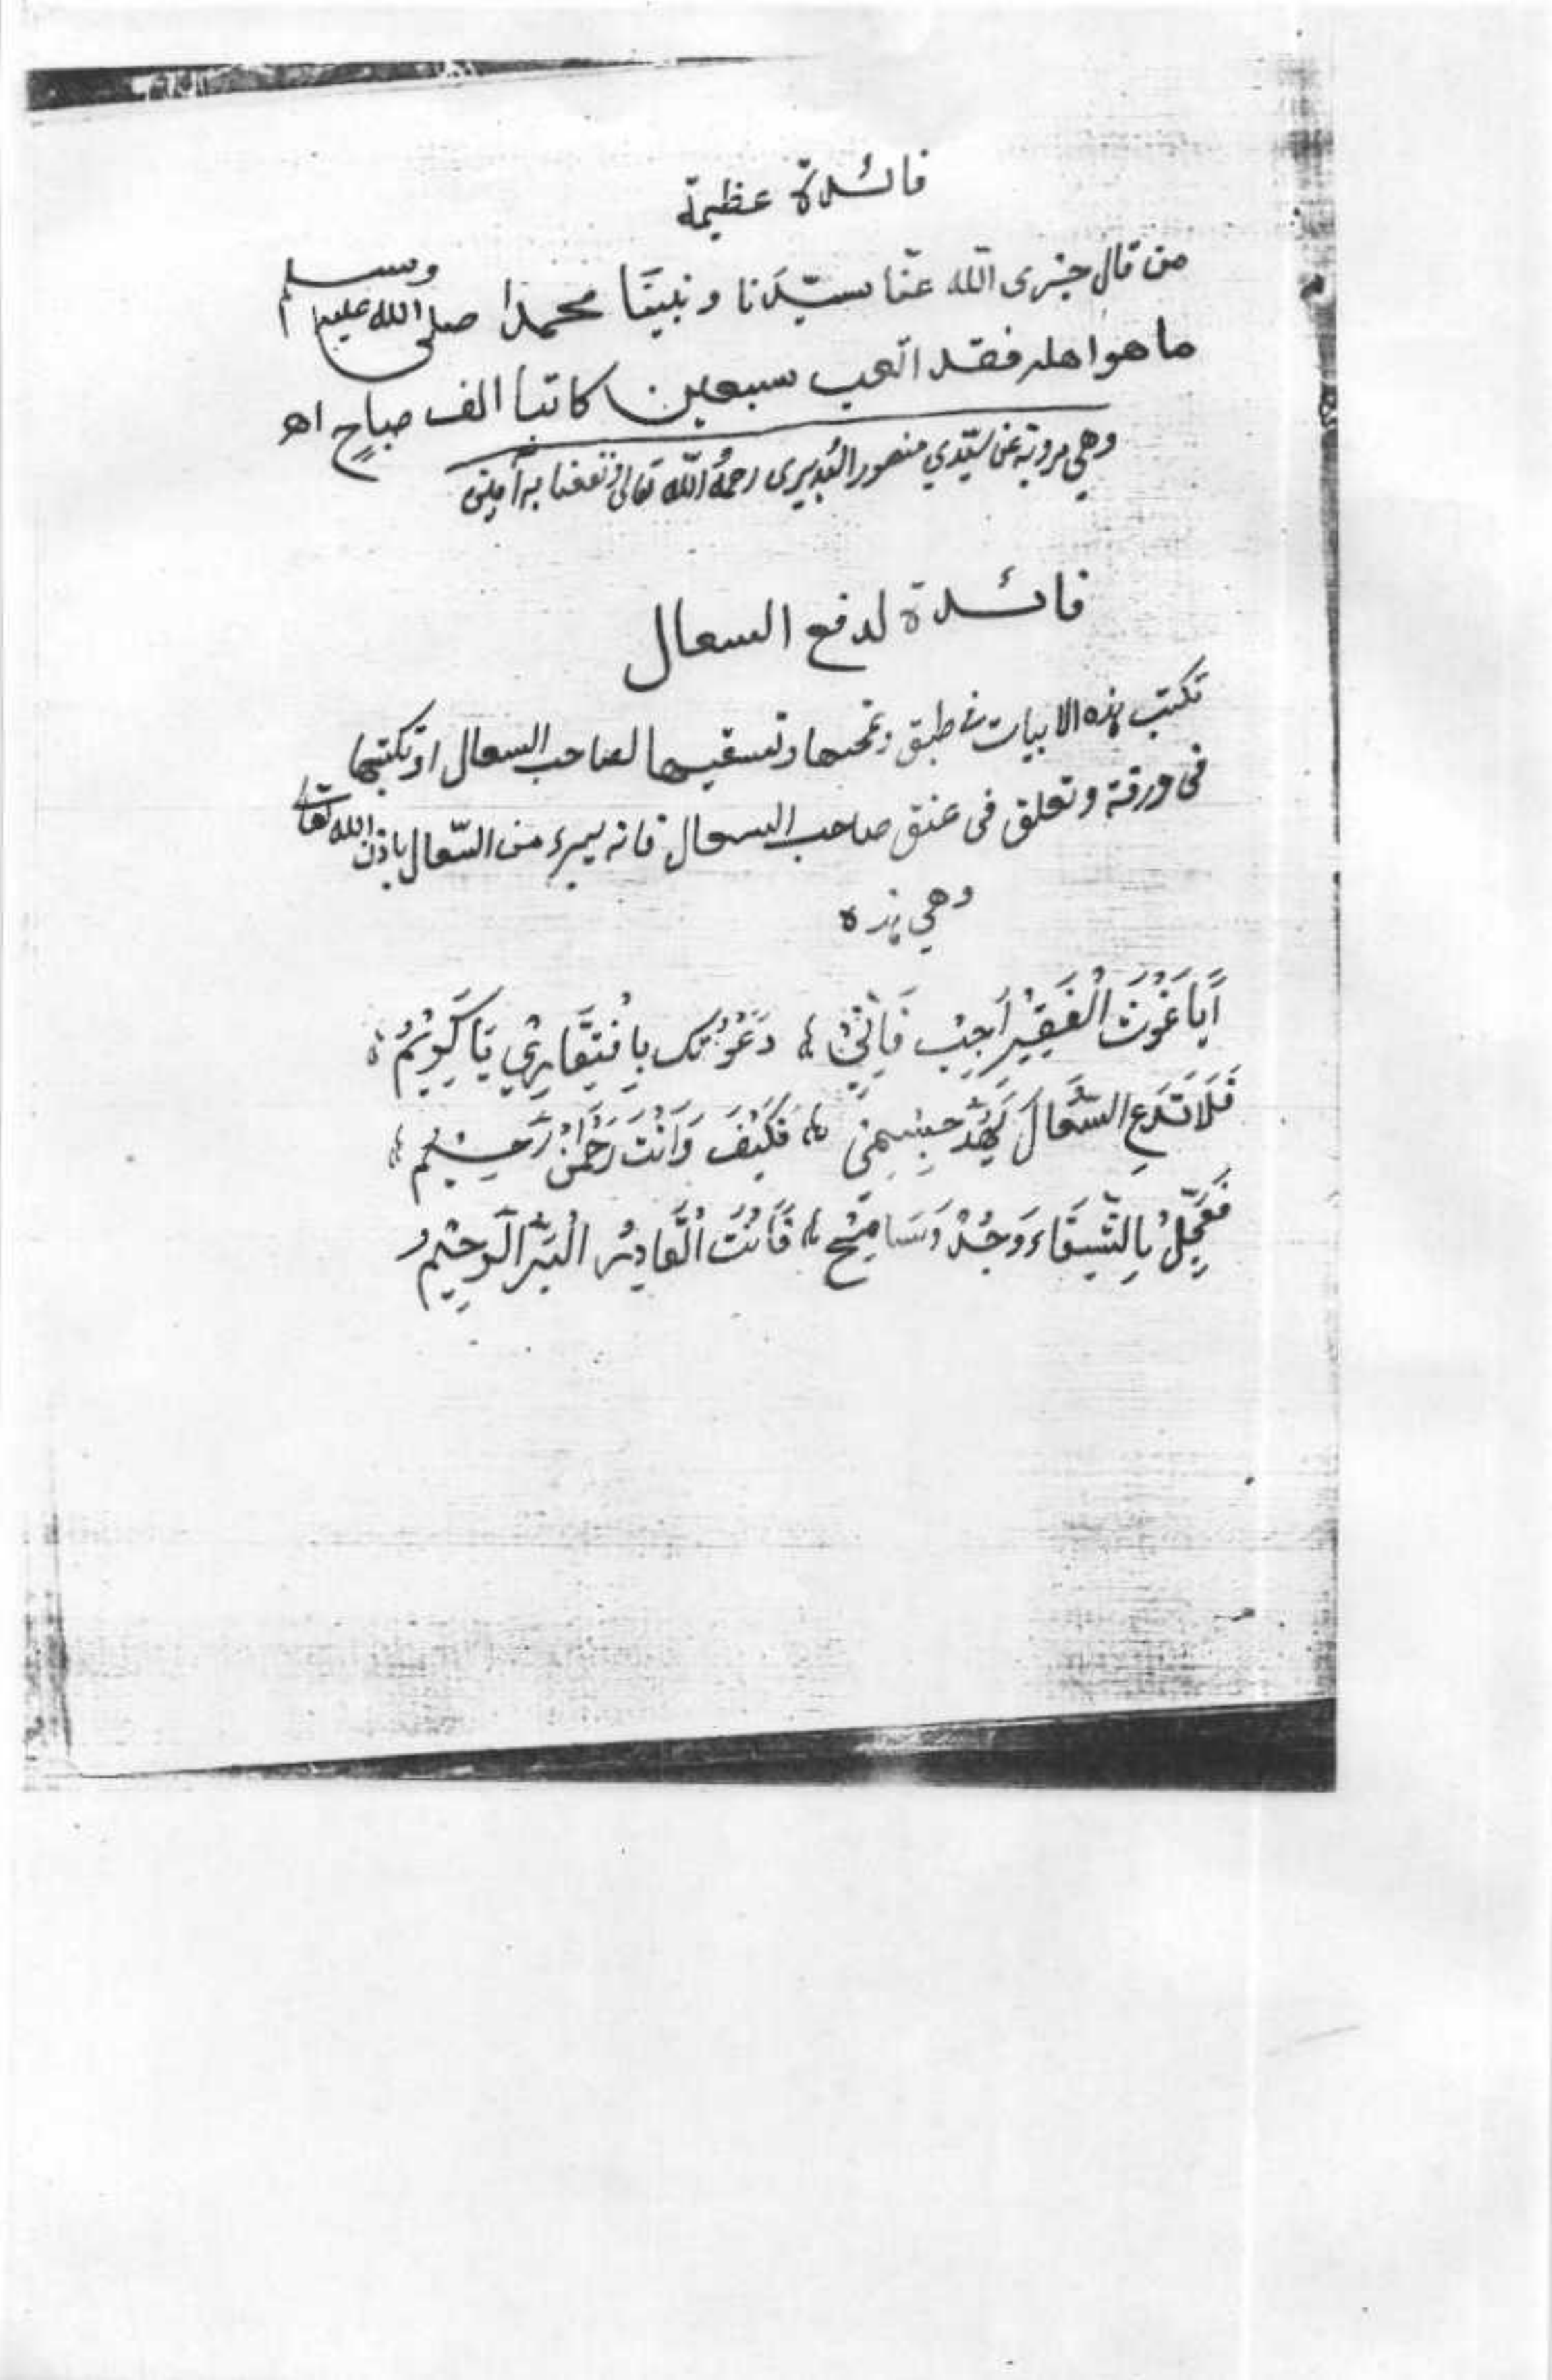 فائدة عظيمة
من قال جزى الله عنّا سيّدَنا ونبيَّنَا محمدًا صلى الله عليه وسلم
ما هو اهله فقد اتعب سبعين كاتبا الف صباحٍ اهـ
وهي مروية عن سيّدي منصور البُديرى رحمهُ الله تعالى ونفعنا به آمين
فائدة لدفع السعال
تكتب هذه الابيات في طبق وتمحها وتسقيها لصاحب السعال او تكتبها
فى ورقة وتعلق فى عنق صاحب السعال فانه يبرء من السّعال باذن الله تعالى
وهي هذه
أَيَا غَوْثَ الْفَقِيْرِ أَجِبْ فَإِنِّيْ ، دَعَوْتُك بِافْتِقَارِيْ يَا كَرِيْمُ ،
فَلَا تَدَعِ السُّعَالَ يَهُدُّ جِسْمِيْ ، فَكَيْفَ وَأَنْتَ رَحْمَنٌ رَحِيْمُ ،
فَعَجِّلْ بِالشِّفَاءِ وَجُدْ وَسَامِحْ ، فَأَنْتَ الْقَادِرُ الْبَرُّ الرَحِيْمُ